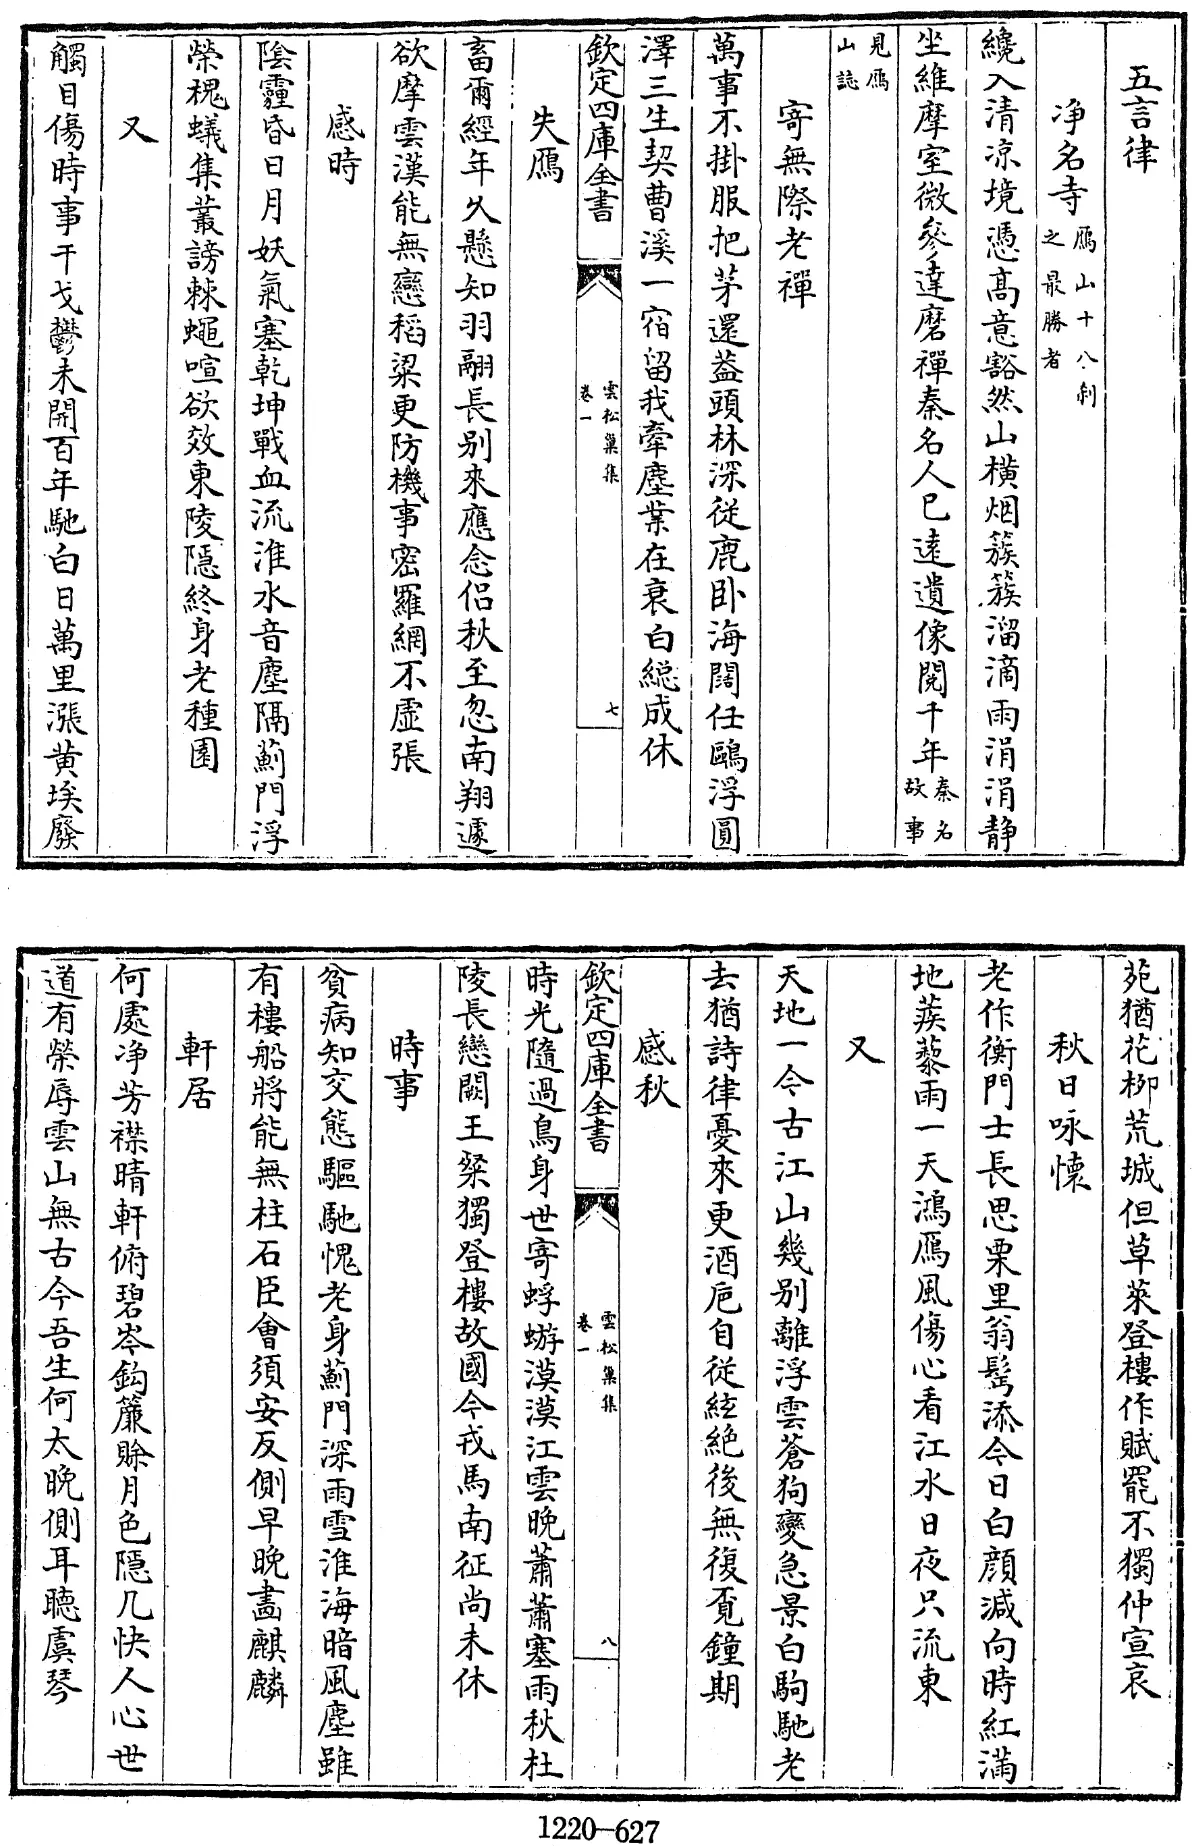 五言律
净名寺鴈山十八刹之最勝者
纔入清凉境憑髙意豁然山横烟簇簇溜滴雨涓涓静
坐維摩室微參達磨禪秦名人已逺遺像閲千年秦名故事
見鴈山誌
寄無際老禪
萬事不掛服把茅還葢頭林深從鹿卧海闊任鷗浮圓
澤三生契曹溪一宿留我牽塵業在衰白總成休
欽定四庫全書
雲松巢集
卷一
七
失鴈
畜爾經年久懸知羽翮長别來應念侣秋至忽南翔遽
欲摩雲漢能無戀稻粱更防機事宻羅網不虚張
感時
陰霾昏日月妖氣塞乾坤戰血流淮水音塵隔薊門浮
榮槐蟻集叢謗棘蠅喧欲效東陵隱終身老種園
又
觸目傷時事干戈鬱未開百年馳白日萬里漲黄埃廢
苑猶花柳荒城但草萊登樓作賦罷不獨仲宣哀
秋日咏懷
老作衡門士長思栗里翁髩添今日白顔減向時紅滿
地蒺藜雨一天鴻鴈風傷心看江水日夜只流東
又
天地一今古江山幾别離浮雲蒼狗變急景白駒馳老
去猶詩律憂來更酒巵自從絃絶後無復覓鐘期
感秋
欽定四庫全書
雲松巢集
卷一
八
時光隨過鳥身世寄蜉蝣漠漠江雲晚蕭蕭塞雨秋杜
陵長戀闕王粲獨登樓故國今戎馬南征尚未休
時事
貧病知交態驅馳愧老身薊門深雨雪淮海暗風塵雖
有樓船將能無柱石臣會須安反側早晚畵麒麟
軒居
何處净芳襟晴軒俯碧岑鈎簾賖月色隱几快人心世
道有榮辱雲山無古今吾生何太晩側耳聴虞琴
1220—627